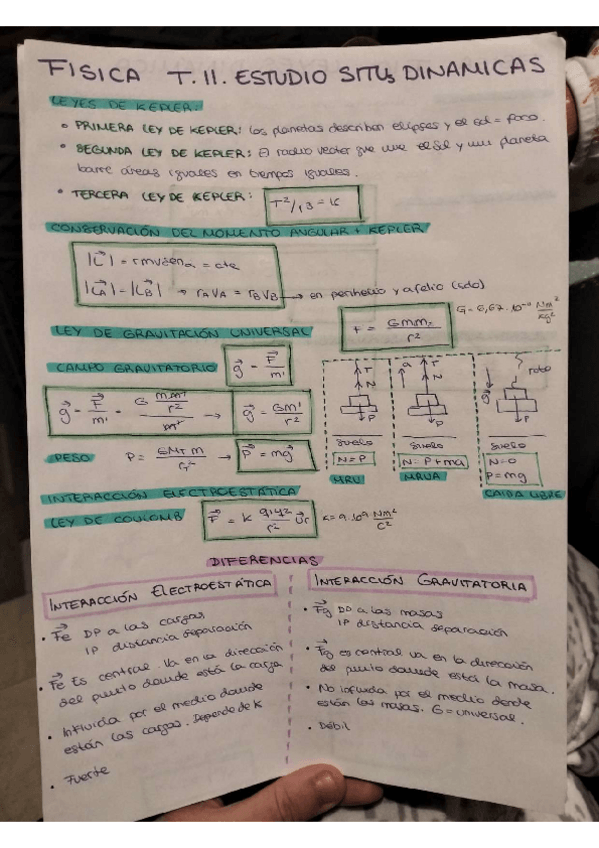 FISICA T.11. ESTUDIO SITUS DINAMICAS
LEYES DE KEPLER:
• PRIMERA LEY DE KEPLER: Los planetas describen elipses y el sol = foco.
• SEGUNDA LEY DE KEPLER: El radio vector que une el Sol y un planeta
barre áreas iguales en tiempos iguales.
• TERCERA LEY DE KEPLER: T²/r3 = K
CONSERVACIÓN DEL MOMENTO ANGULAR + KEPLER
|L⃗| = rmvsenα = cte
|L⃗A| = |L⃗B| → rAVA = rBVB → en perihelio y afelio (solo)
G = 6,67 · 10⁻¹¹ Nm²/kg²
LEY DE GRAVITACIÓN UNIVERSAL
F = GMm/r²
CAMPO GRAVITATORIO g⃗ = F⃗/m'
g⃗ = F⃗/m' = G Mm'/r² / m' → g⃗ = GM'/r²
PESO P = GMTm/r² → P⃗ = mg⃗
T
N
P
suelo
N = P
MRU
a
T
N
P
suelo
N = P + ma
MRUA
roto
g
P
suelo
N = 0
P = mg
CAIDA LIBRE
INTERACCIÓN ELECTROESTÁTICA
LEY DE COULOMB F⃗ = K q1q2/r² u⃗r K = 9·10⁹ Nm²/C²
DIFERENCIAS
INTERACCIÓN ELECTROESTÁTICA
• F⃗e DP a las cargas
IP distancia separación
• F⃗e Es central. Va en la dirección
del punto donde está la carga
• Influida por el medio donde
están las cargas. Depende de K
• Fuerte
INTERACCIÓN GRAVITATORIA
• F⃗g DP a las masas
IP distancia separación
• F⃗g es central va en la dirección
del punto donde está la masa.
• No influida por el medio donde
están las masas. G = universal.
• Débil